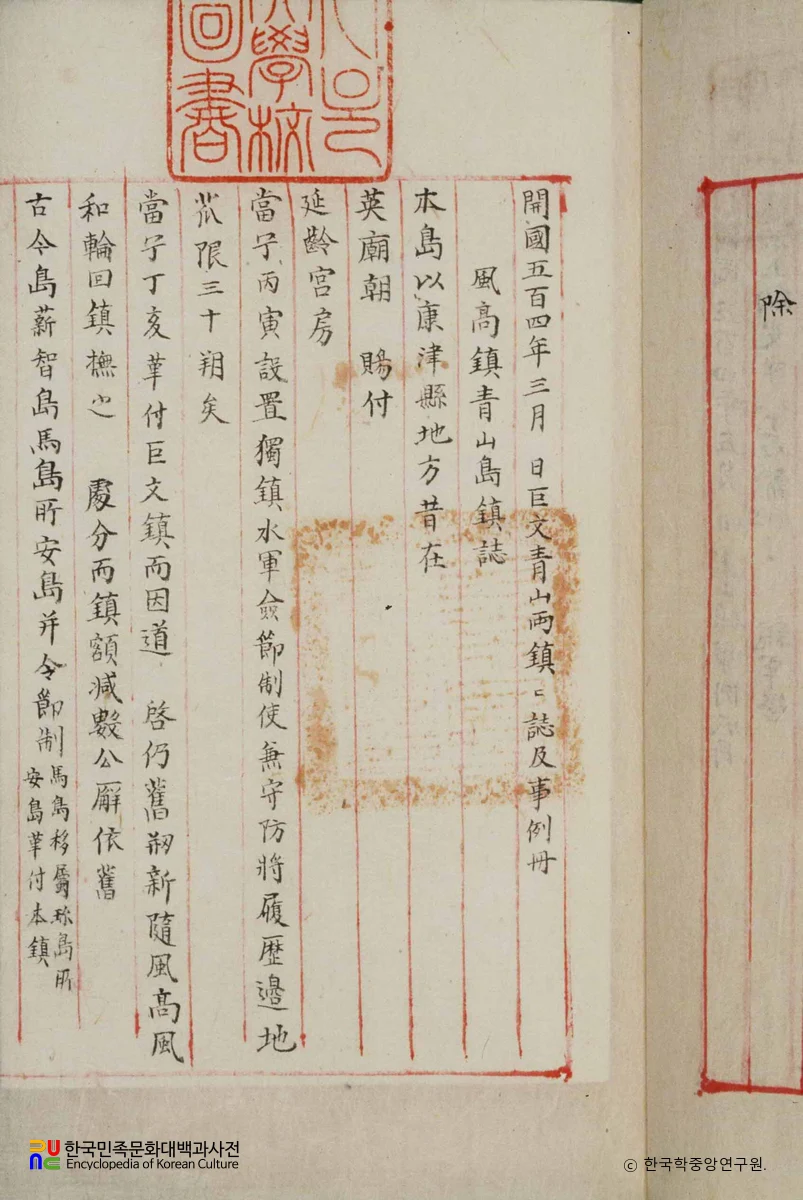 除
開國五百四年三月 日巨文青山両鎮〻誌及事例冊
風高鎮青山島鎮誌
本島以康津縣地方昔在
英廟朝 賜付
延齡宮房
當宁丙寅設置獨鎮水軍僉節制使兼守防將履歷邊地
苽限三十朔矣
當宁丁亥革付巨文鎮而因道 啓仍舊刱新隨風高風
和輪回鎮撫之 處分而鎮額减數公廨依舊
古今島薪智島馬島所安島并令節制
馬島移屬珎島所
安島革付本鎮
學校
圖書
한국민족문화대백과사전
Encyclopedia of Korean Culture
ⓒ 한국학중앙연구원.